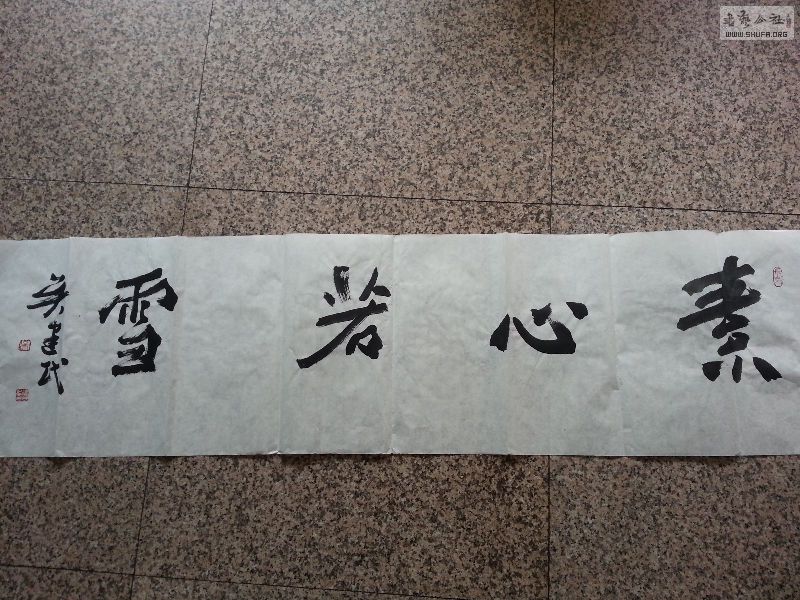 素心若雪
吴建民
书艺公社
WWW.SHUFA.ORG